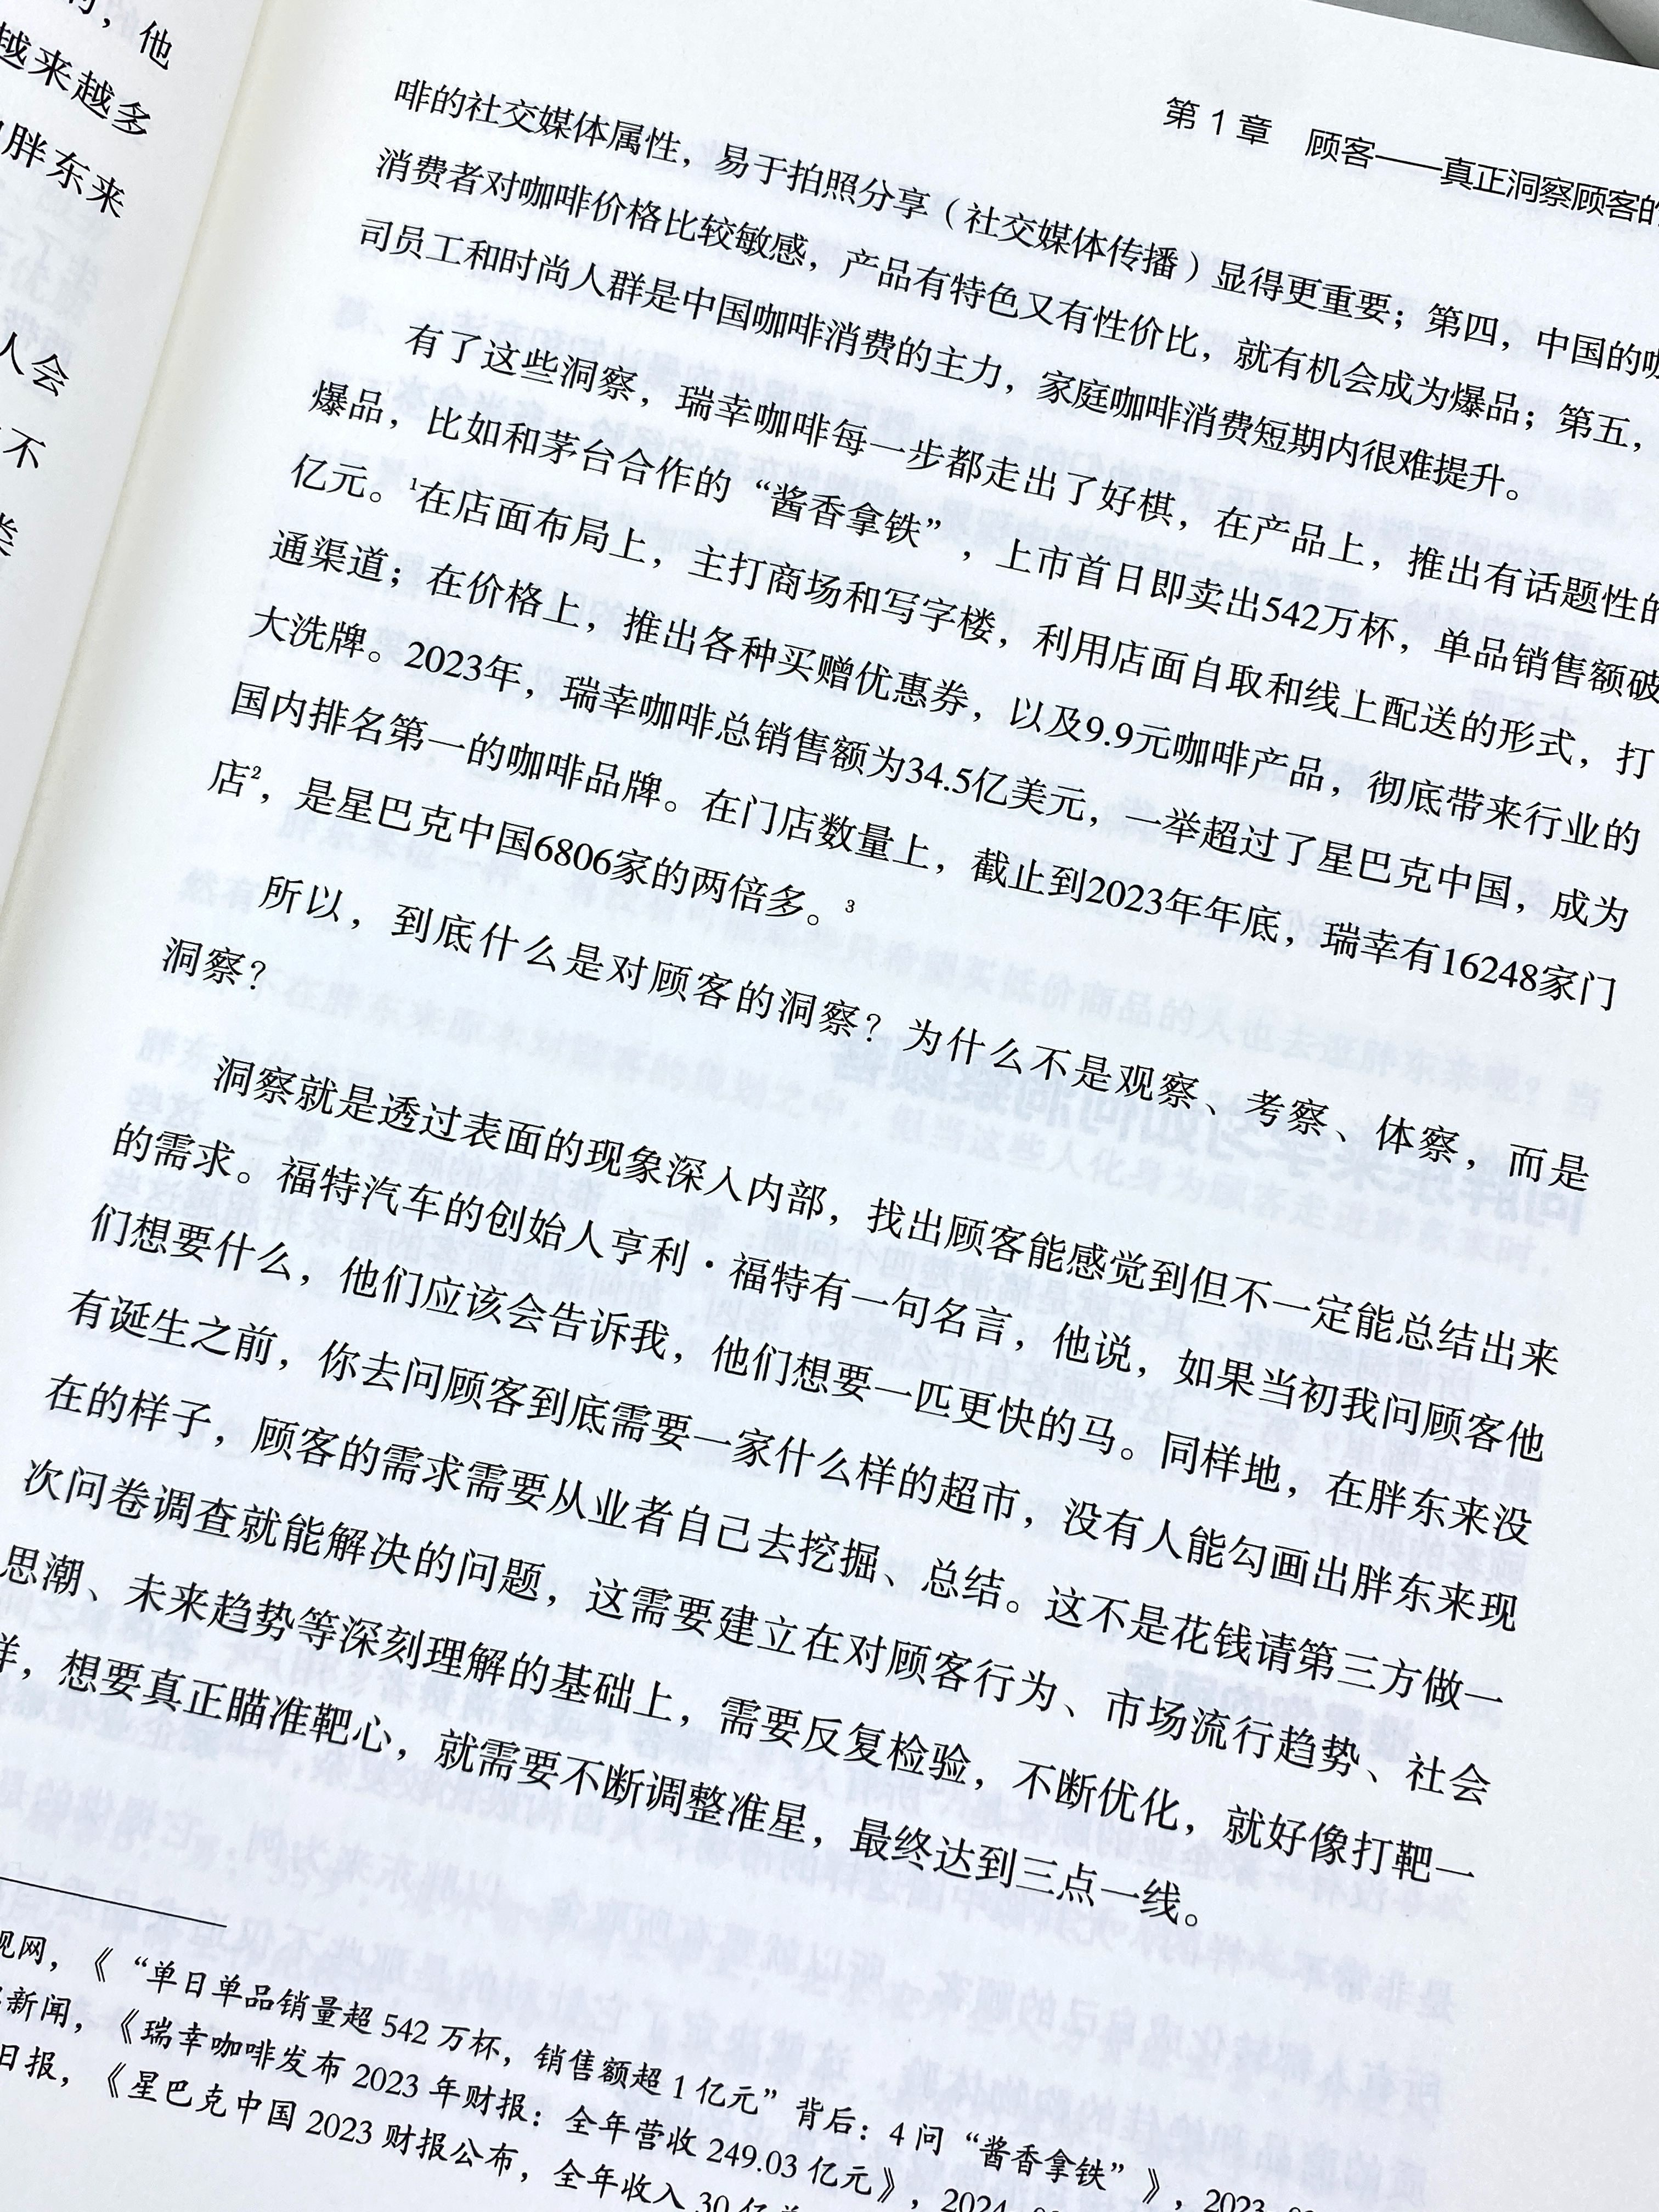 他
越来越多
胖东来
人会
不
类
第 1 章 顾客——真正洞察顾客的
啡的社交媒体属性，易于拍照分享（社交媒体传播）显得更重要；第四，中国的咖
消费者对咖啡价格比较敏感，产品有特色又有性价比，就有机会成为爆品；第五，
司员工和时尚人群是中国咖啡消费的主力，家庭咖啡消费短期内很难提升。
有了这些洞察，瑞幸咖啡每一步都走出了好棋，在产品上，推出有话题性的
爆品，比如和茅台合作的“酱香拿铁”，上市首日即卖出542万杯，单品销售额破
亿元。¹在店面布局上，主打商场和写字楼，利用店面自取和线上配送的形式，打
通渠道；在价格上，推出各种买赠优惠券，以及9.9元咖啡产品，彻底带来行业的
大洗牌。2023年，瑞幸咖啡总销售额为34.5亿美元，一举超过了星巴克中国，成为
国内排名第一的咖啡品牌。在门店数量上，截止到2023年年底，瑞幸有16248家门
店²，是星巴克中国6806家的两倍多。³
所以，到底什么是对顾客的洞察？为什么不是观察、考察、体察，而是
洞察？
洞察就是透过表面的现象深入内部，找出顾客能感觉到但不一定能总结出来
的需求。福特汽车的创始人亨利·福特有一句名言，他说，如果当初我问顾客他
们想要什么，他们应该会告诉我，他们想要一匹更快的马。同样地，在胖东来没
有诞生之前，你去问顾客到底需要一家什么样的超市，没有人能勾画出胖东来现
在的样子，顾客的需求需要从业者自己去挖掘、总结。这不是花钱请第三方做一
次问卷调查就能解决的问题，这需要建立在对顾客行为、市场流行趋势、社会
思潮、未来趋势等深刻理解的基础上，需要反复检验，不断优化，就好像打靶一
样，想要真正瞄准靶心，就需要不断调整准星，最终达到三点一线。
视网，《“单日单品销量超 542 万杯，销售额超 1 亿元”背后：4 问“酱香拿铁”》，2023
新闻，《瑞幸咖啡发布 2023 年财报：全年营收 249.03 亿元》，2024
日报，《星巴克中国 2023 财报公布，全年收入 30 亿